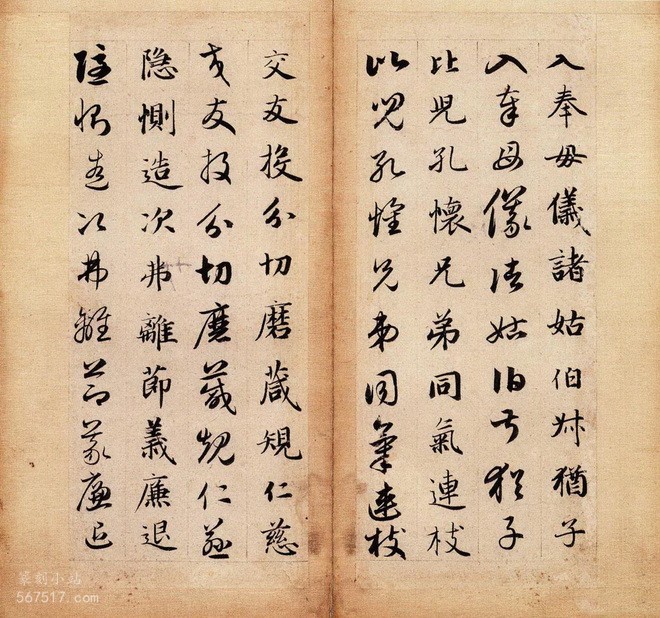 入奉母儀諸姑伯叔猶子
入奉母儀諸姑伯叔猶子
比兒孔懷兄弟同氣連枝
比兒孔懷兄弟同氣連枝
交友投分切磨箴規仁慈
交友投分切磨箴規仁慈
隐惻造次弗離節義廉退
隐惻造次弗離節義廉退
篆刻小站
567517.com